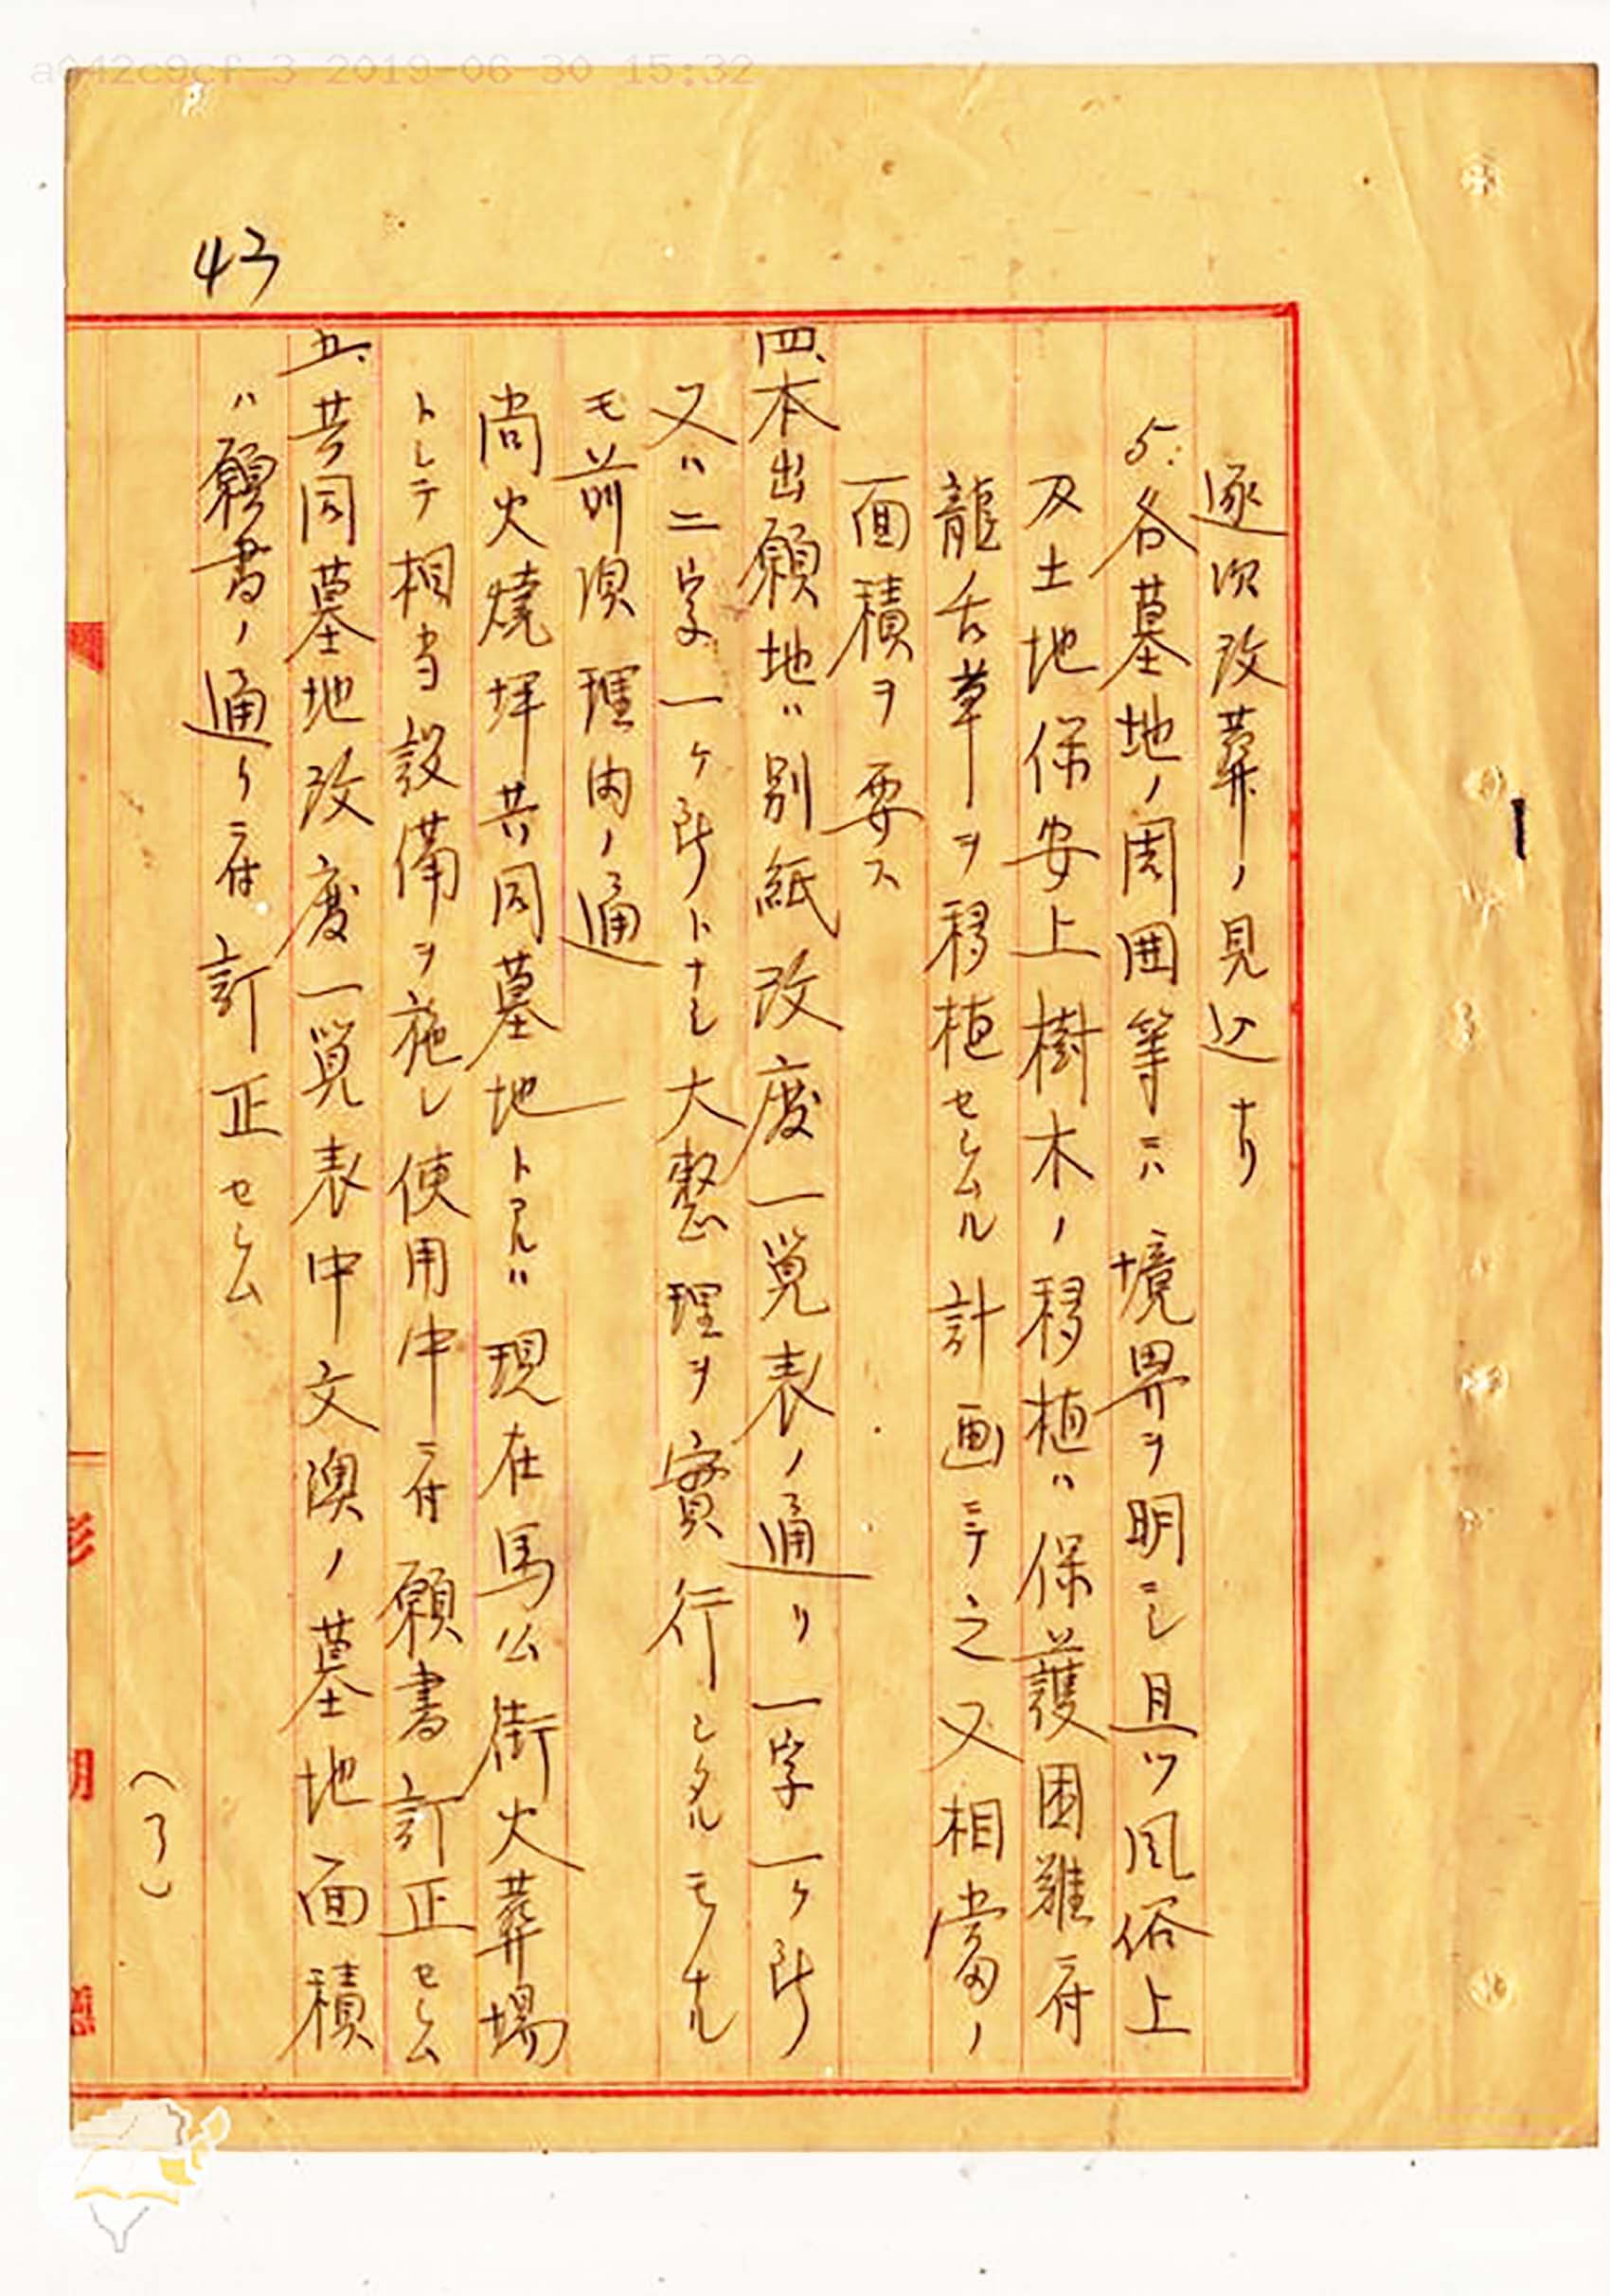 a042c9cf-3 2019-06-30 15:32
43
逐次改葬ノ見込ナリ
5.各墓地ノ周囲等ニハ境界ヲ明ニシ且ツ風俗上
及土地保安上樹木ノ移植ハ保護困難ニ付
龍舌草ヲ移植セシムル計画ニテ之又相當ノ
面積ヲ要ス
四、本出願地ハ別紙改廃一覧表ノ通リ一字一ヶ所
又ハ二字一ヶ所トナシ大整理ヲ實行シタルモノナル
モ前項理由ノ通
尚火燒坪共同墓地トアルハ現在馬公街火葬場
トシテ相当設備ヲ施シ使用中ニ付願書訂正セシム
五、共同墓地改廃一覧表中文澳ノ墓地面積
ハ願書ノ通リニ付訂正セシム
(了)